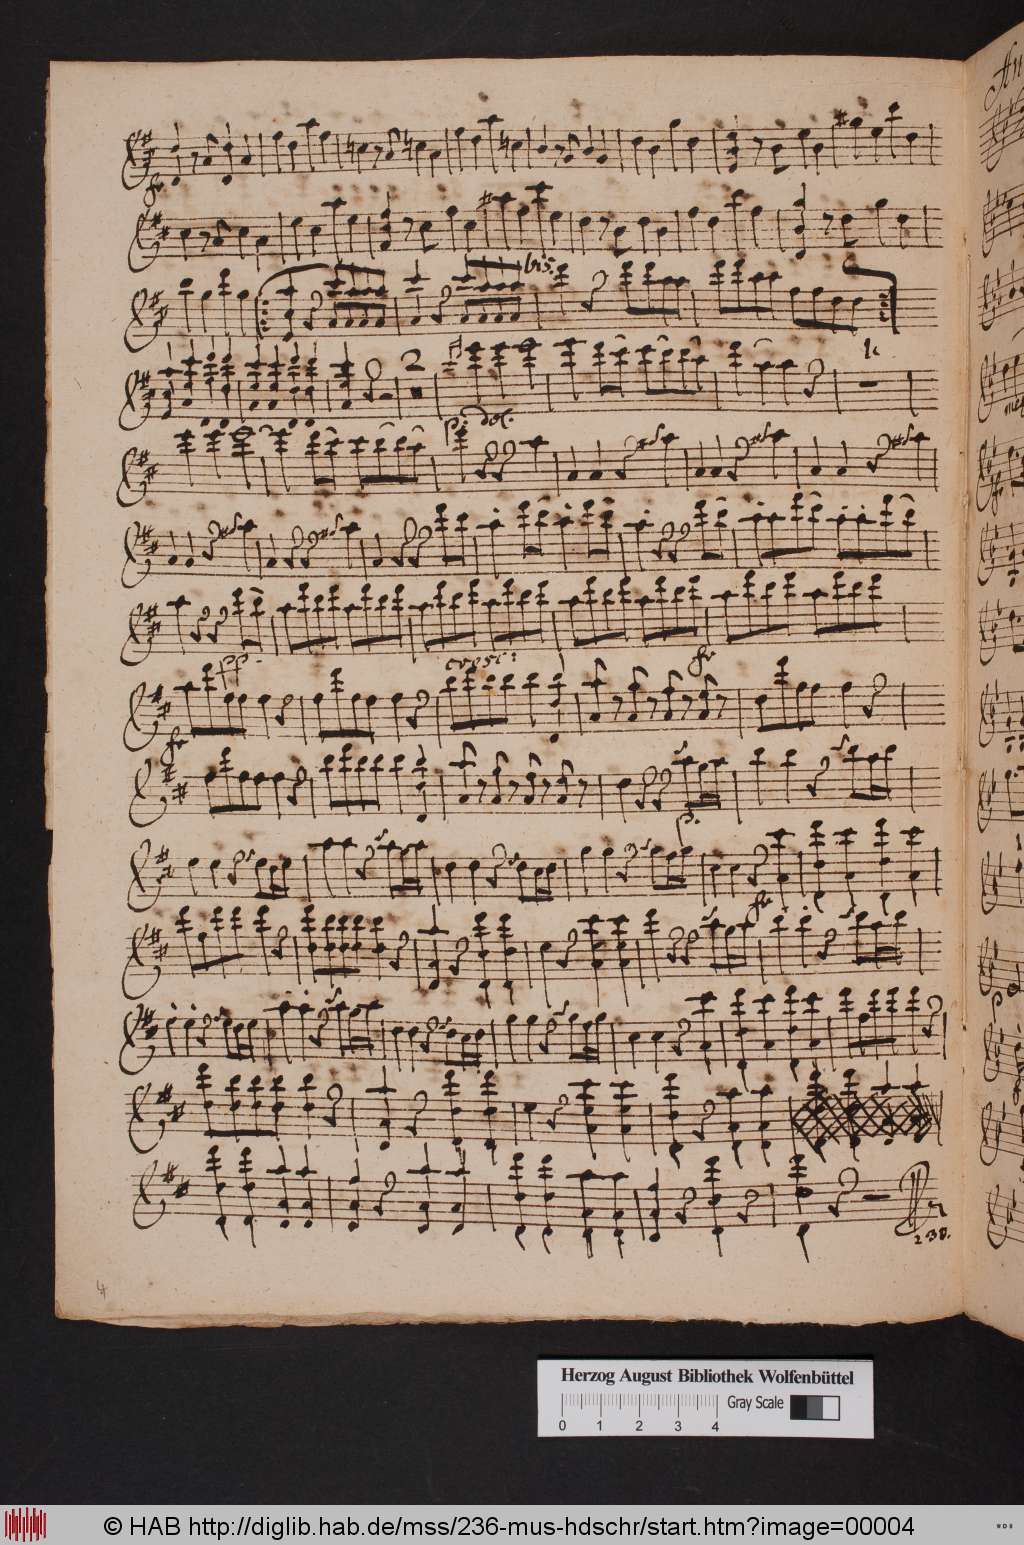 An
fr
bis.
2
k
p. dol.
pp.
cresc:
fr
fr
p.
fr
238.
4
Herzog August Bibliothek Wolfenbüttel
Gray Scale
0 1 2 3 4
© HAB http://diglib.hab.de/mss/236-mus-hdschr/start.htm?image=00004